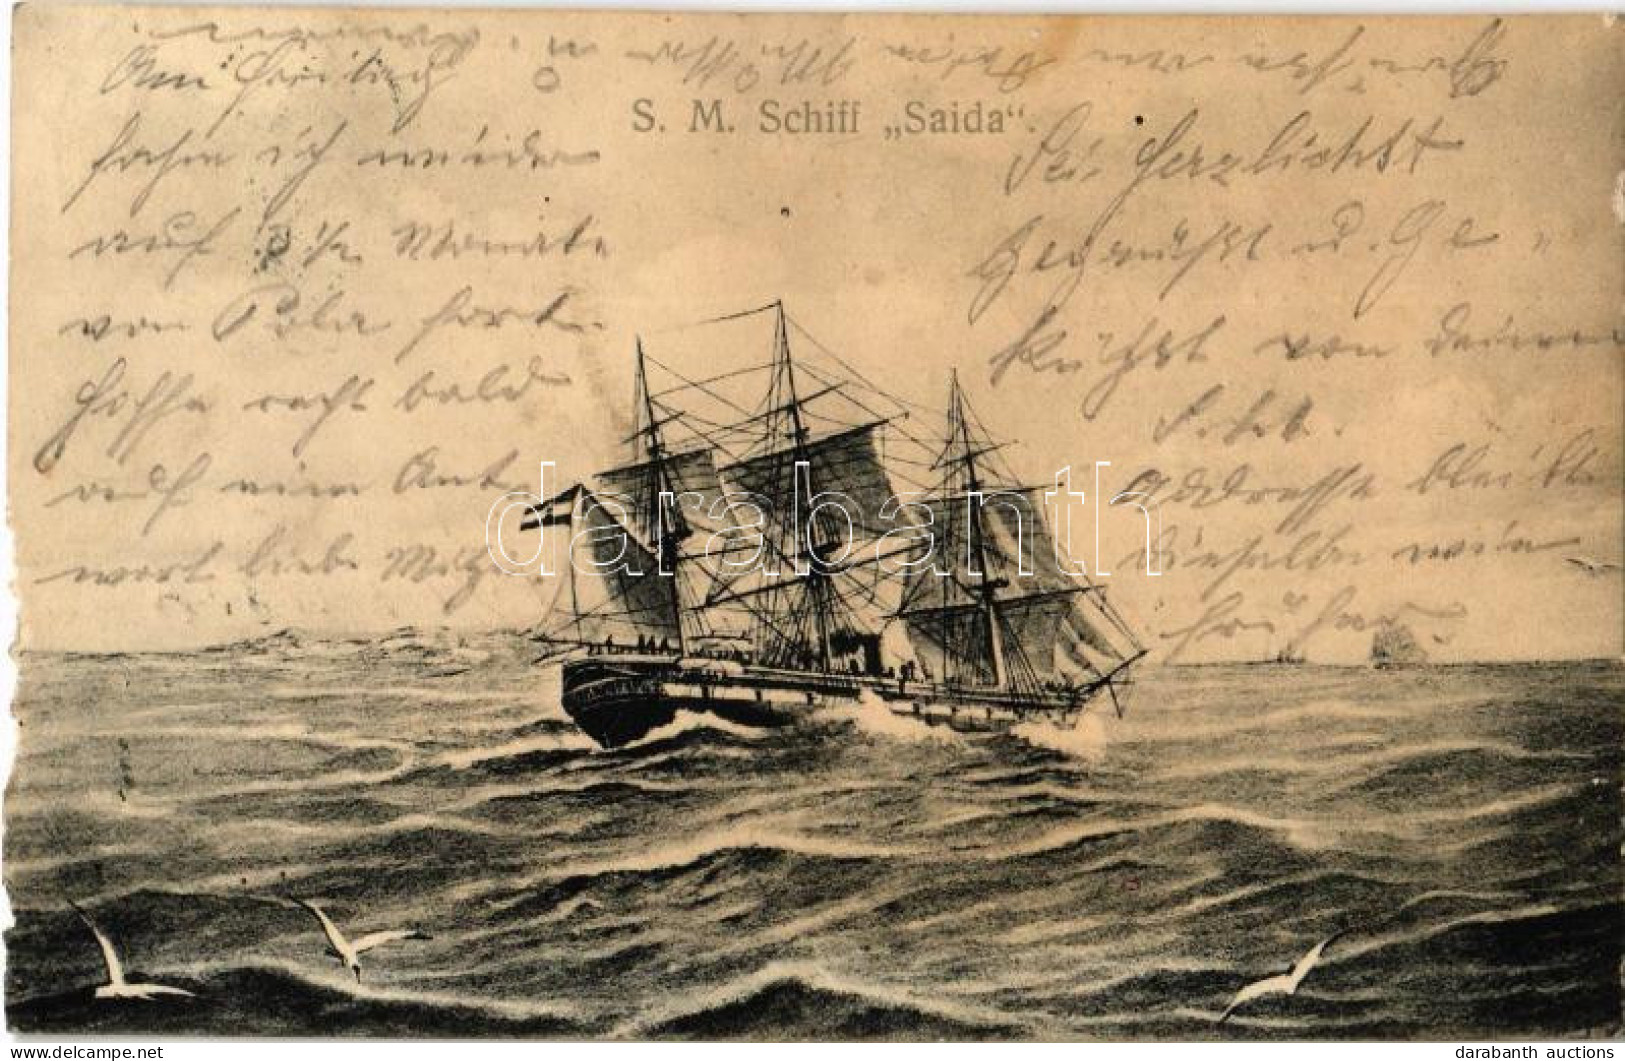 S. M. Schiff „Saida“.
Am Freitag
fahre ich wieder
auf 3 1/2 Monate
von Pola fort.
Hoffe recht bald
auf eine Ant-
wort liebe Mitzi.
Sei herzlichst
gegrüßt u. ge-
küßt von deinem
Addresse bleibt
dieselbe wie
früher.
darabanth
darabanth auctions